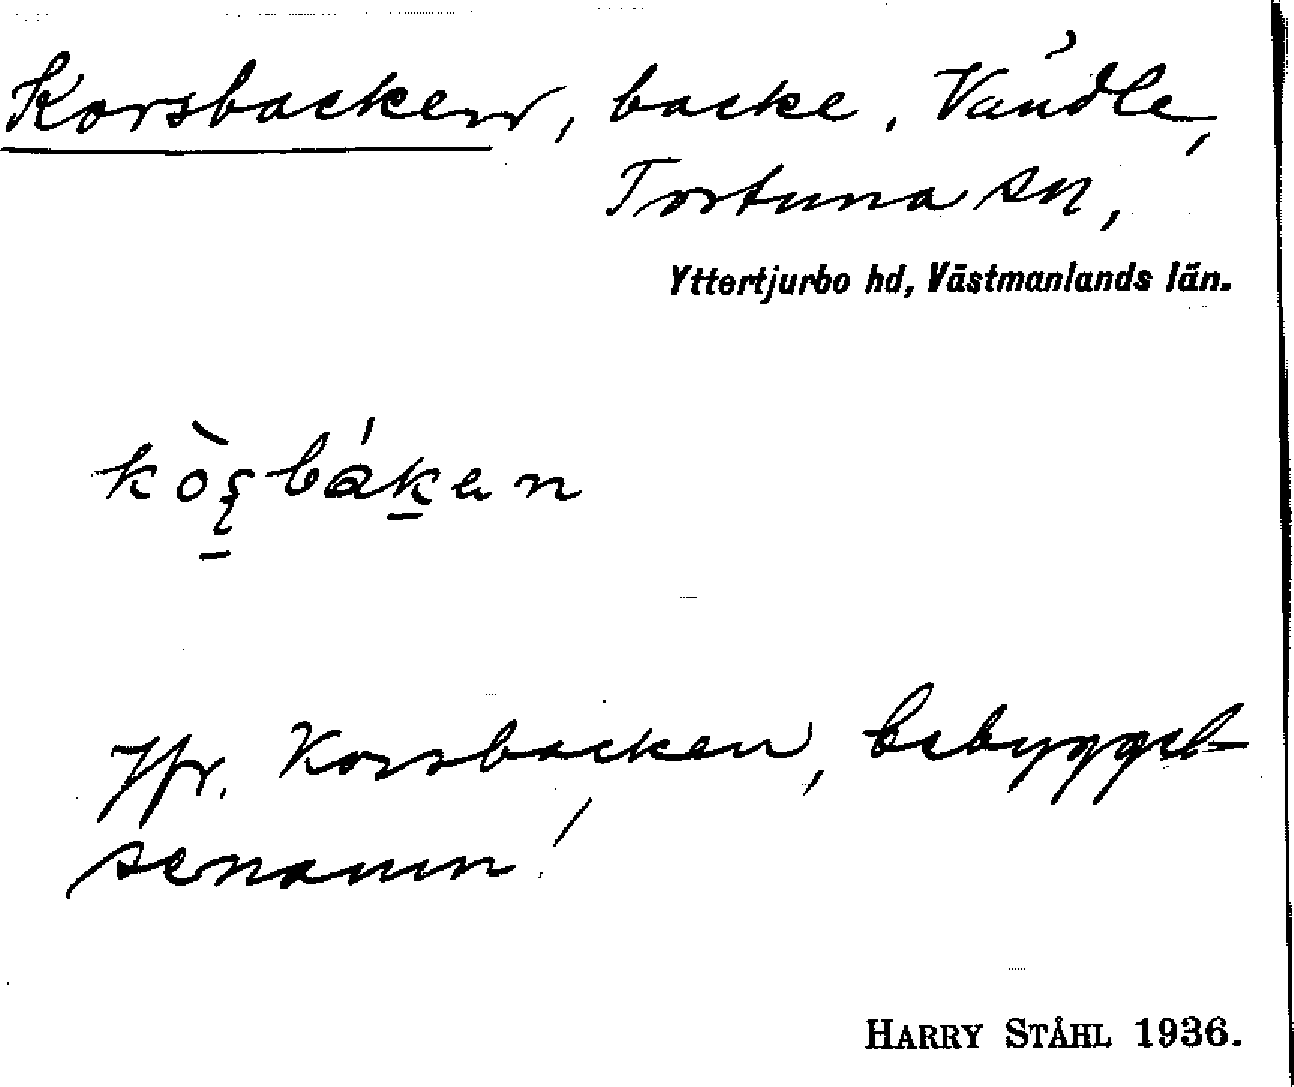 Korsbacken, backe, Vändle,
Tortuna sn,
Yttertjurbo hd, Västmanlands län.
kòʂbáḵen
Jfr. Korsbacken, bebyggel-
senamn!
HARRY STÅHL 1936.